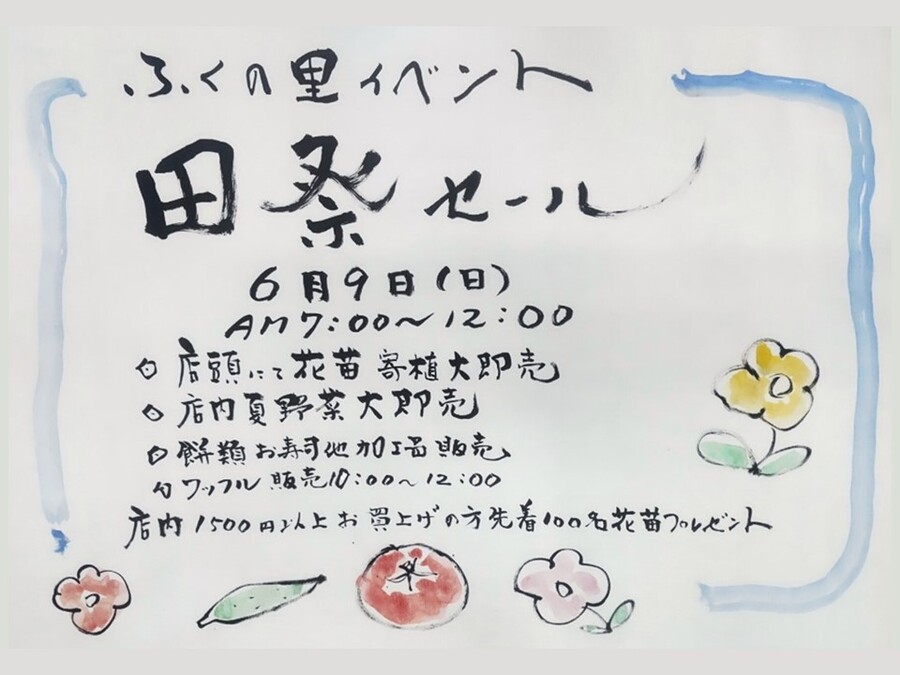 ふくの里イベント
田祭セール
6月9日(日)
AM7:00〜12:00
◇店頭にて花苗寄植大即売
◇店内夏野菜大即売
◇餅類お寿司他加工品販売
ワッフル販売10:00〜12:00
店内1500円以上お買上げの方先着100名花苗プレゼント